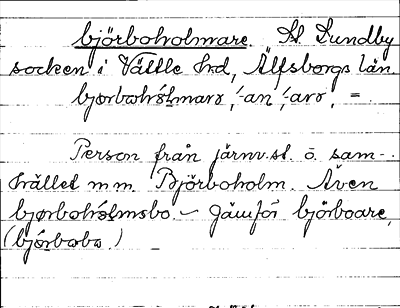 björboholmare. St Lundby
socken i Vättle hd, Älfsborgs län.
bjørbohólmarə, ⁄-an, ⁄-arə, =.
Person från järnv.st. o. sam-
hället m m. Björboholm. Även
bjørbohólmsbo. – Jämför björboare,
(bjórboba.)